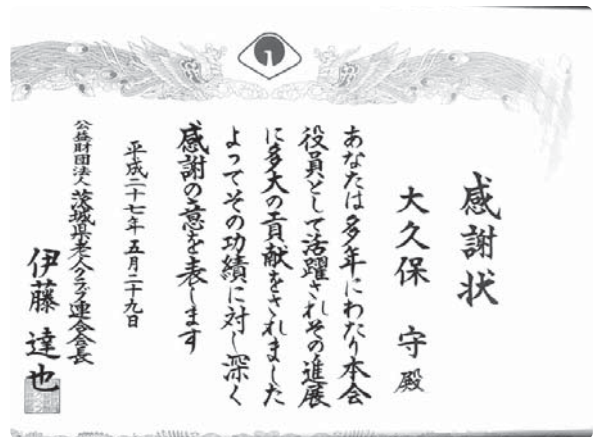 感謝状
大久保 守 殿
あなたは多年にわたり本会
役員として活躍されその進展
に多大の貢献をされました
よってその功績に対し深く
感謝の意を表します
平成二十七年五月二十九日
公益財団法人 茨城県老人クラブ連合会会長
伊藤 達也